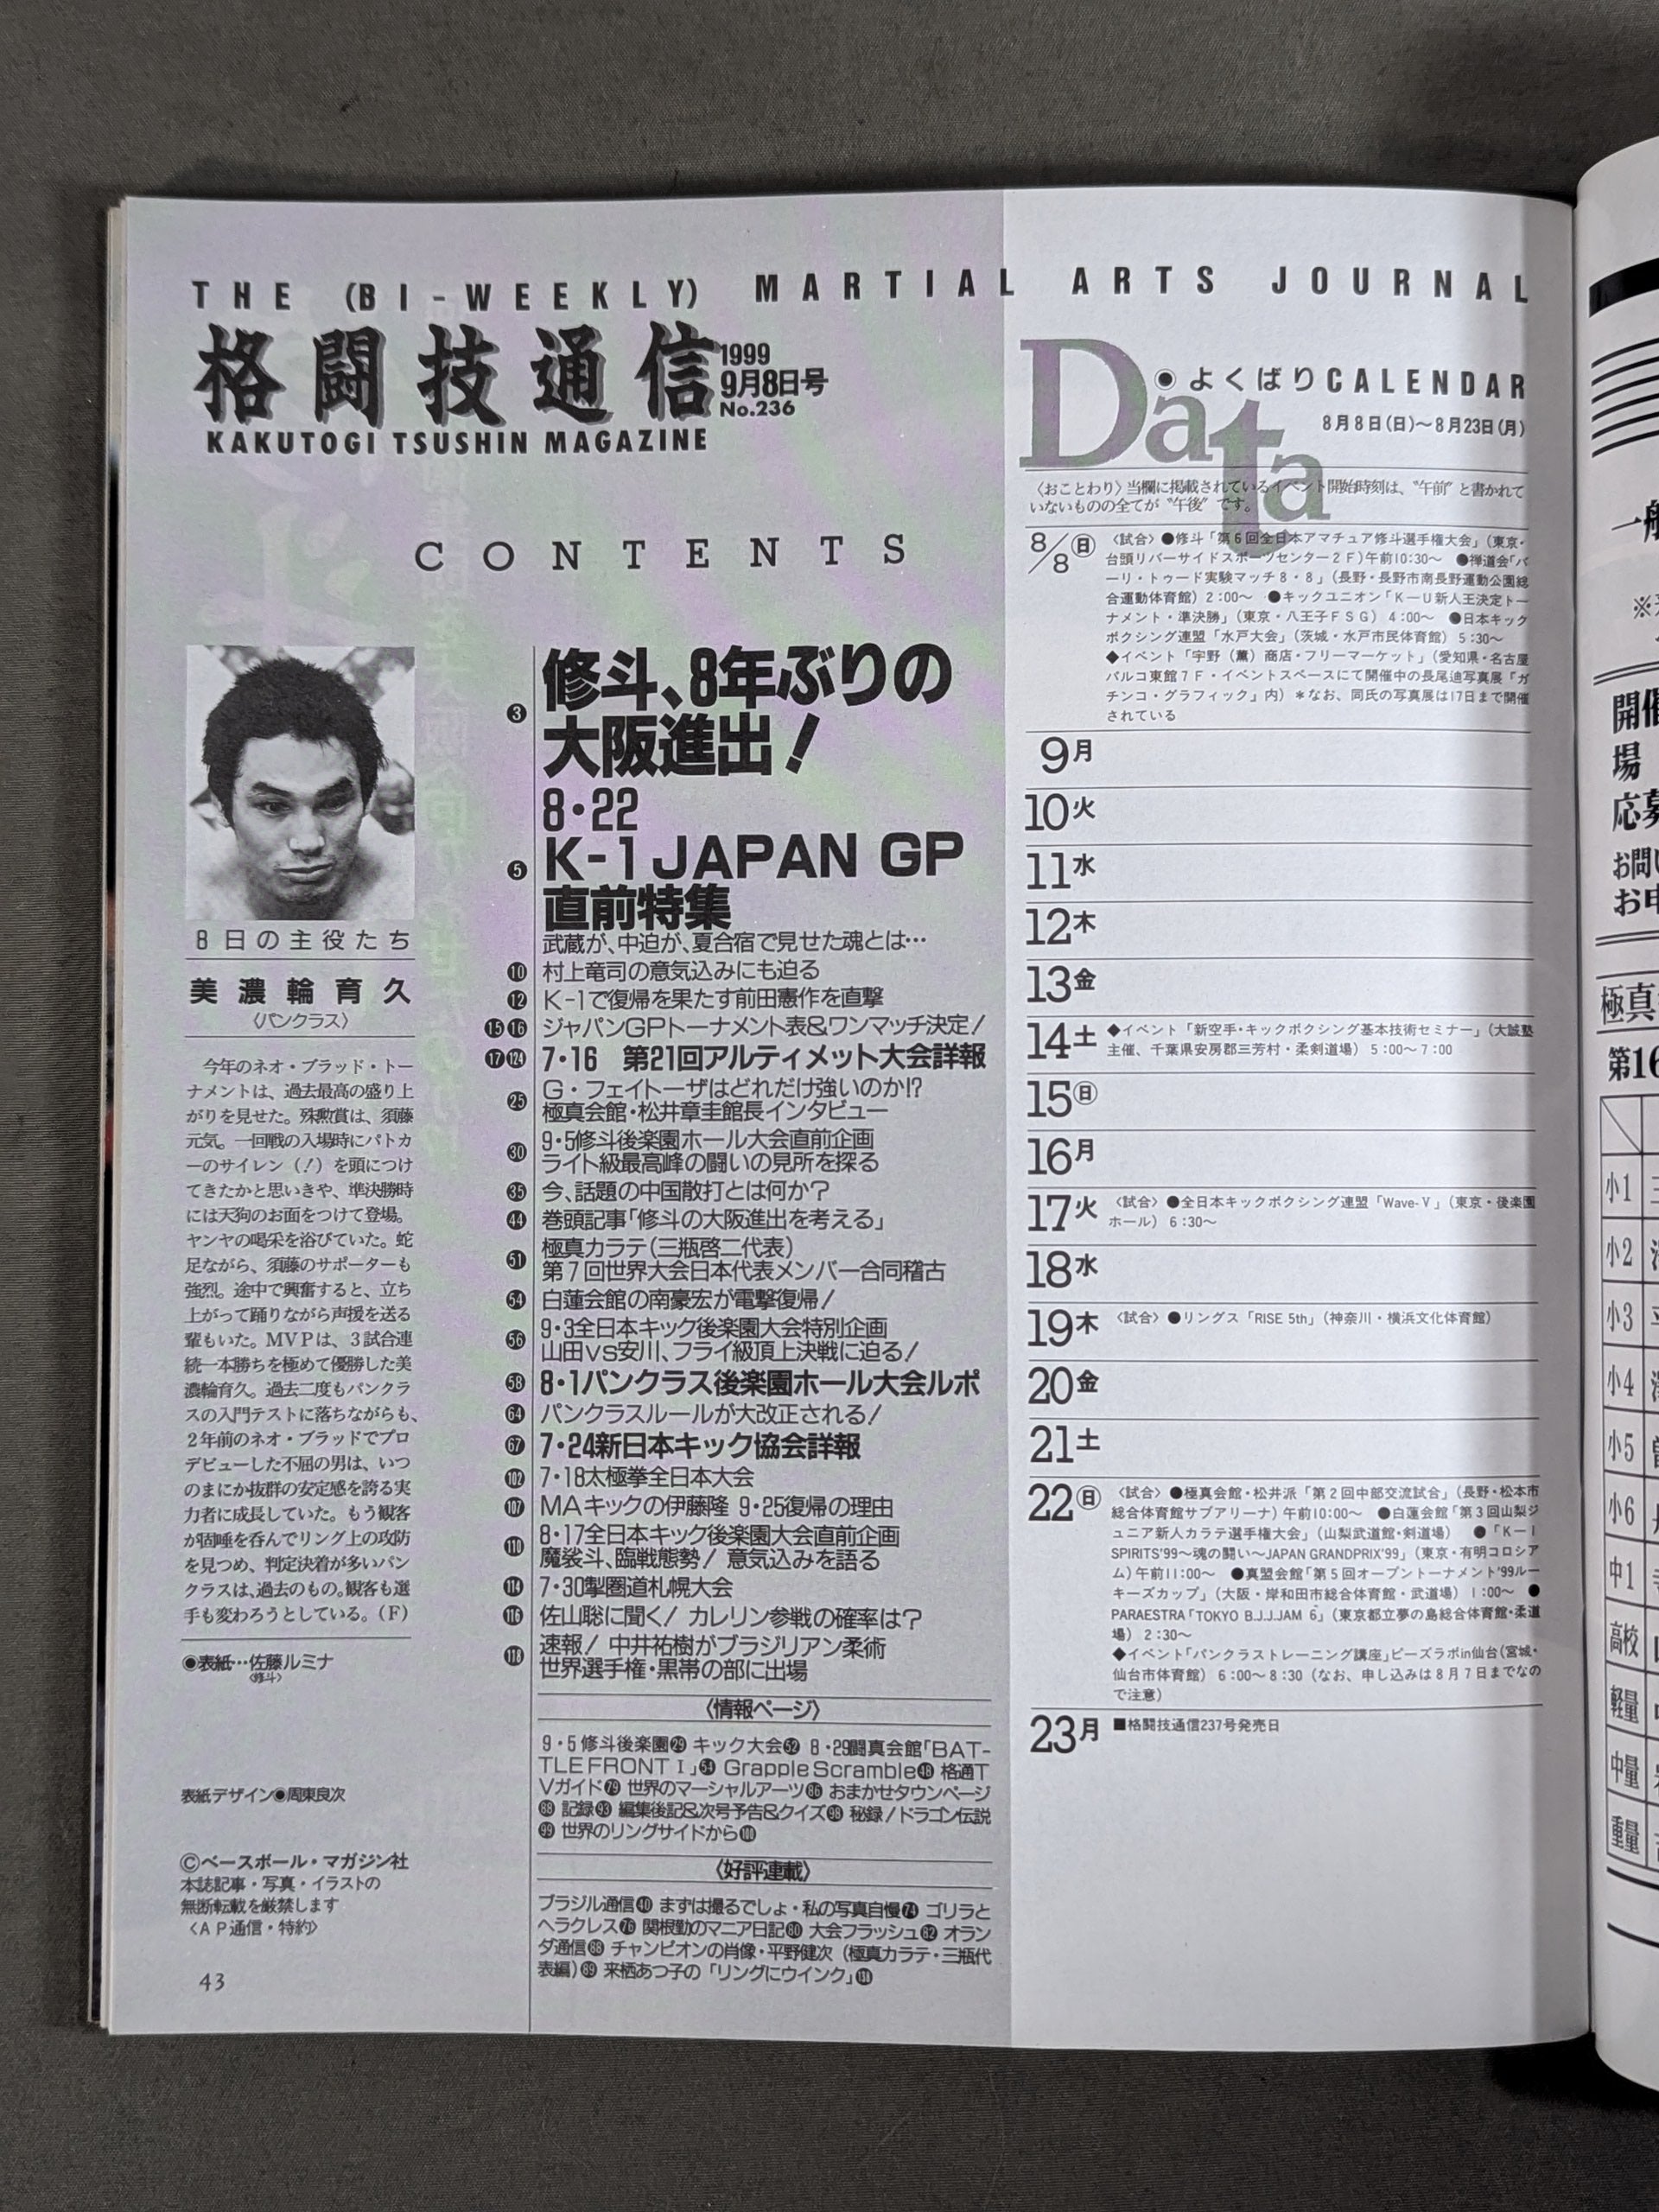 THE (BI-WEEKLY) MARTIAL ARTS JOURNAL
格闘技通信
1999
9月8日号
No.236
KAKUTOGI TSUSHIN MAGAZINE
CONTENTS
8日の主役たち
美濃輪育久
〈パンクラス〉
今年のネオ・ブラッド・トー
ナメントは、過去最高の盛り上
がりを見せた。殊勲賞は、須藤
元気。一回戦の入場時にパトカ
ーのサイレン（！）を頭につけ
てきたかと思いきや、準決勝時
には天狗のお面をつけて登場。
ヤンヤの喝采を浴びていた。蛇
足ながら、須藤のサポーターも
強烈。途中で興奮すると、立ち
上がって踊りながら声援を送る
輩もいた。MVPは、3試合連
続一本勝ちを極めて優勝した美
濃輪育久。過去二度もパンクラ
スの入門テストに落ちながらも、
2年前のネオ・ブラッドでプロ
デビューした不屈の男は、いつ
のまにか抜群の安定感を誇る実
力者に成長していた。もう観客
が固唾を呑んでリング上の攻防
を見つめ、判定決着が多いパン
クラスは、過去のもの。観客も選
手も変わろうとしている。（F）
●表紙…佐藤ルミナ
〈修斗〉
表紙デザイン●周東良次
©ベースボール・マガジン社
本誌記事・写真・イラストの
無断転載を厳禁します
〈AP通信・特約〉
43
3 修斗、8年ぶりの
大阪進出！
8・22
5 K-1 JAPAN GP
直前特集
武蔵が、中迫が、夏合宿で見せた魂とは…
10 村上竜司の意気込みにも迫る
12 K-1で復帰を果たす前田憲作を直撃
15 16 ジャパンGPトーナメント表&ワンマッチ決定！
17 124 7・16 第21回アルティメット大会詳報
25 G・フェイトーザはどれだけ強いのか!?
極真会館・松井章圭館長インタビュー
30 9・5修斗後楽園ホール大会直前企画
ライト級最高峰の闘いの見所を探る
35 今、話題の中国散打とは何か？
44 巻頭記事「修斗の大阪進出を考える」
51 極真カラテ（三瓶啓二代表）
第7回世界大会日本代表メンバー合同稽古
54 白蓮会館の南豪宏が電撃復帰！
56 9・3全日本キック後楽園大会特別企画
山田vs安川、フライ級頂上決戦に迫る！
58 8・1パンクラス後楽園ホール大会ルポ
64 パンクラスルールが大改正される！
67 7・24新日本キック協会詳報
102 7・18太極拳全日本大会
107 MAキックの伊藤隆 9・25復帰の理由
110 8・17全日本キック後楽園大会直前企画
魔裟斗、臨戦態勢！ 意気込みを語る
114 7・30掣圏道札幌大会
116 佐山聡に聞く！ カレリン参戦の確率は？
118 速報！ 中井祐樹がブラジリアン柔術
世界選手権・黒帯の部に出場
〈情報ページ〉
9・5修斗後楽園29 キック大会52 8・29闘真会館「BAT-
TLE FRONT I」54 Grapple Scramble48 格通T
Vガイド79 世界のマーシャルアーツ86 おまかせタウンページ
88 記録93 編集後記&次号予告&クイズ98 秘録！ドラゴン伝説
99 世界のリングサイドから100
〈好評連載〉
ブラジル通信40 まずは撮るでしょ・私の写真自慢74 ゴリラと
ヘラクレス76 関根勤のマニア日記80 大会フラッシュ82 オラン
ダ通信88 チャンピオンの肖像・平野健次（極真カラテ・三瓶代
表編）89 来栖あつ子の「リングにウインク」
Data
●よくばりCALENDAR
8月8日(日)～8月23日(月)
〈おことわり〉当欄に掲載されているイベント開始時刻は、“午前”と書かれて
いないものの全てが“午後”です。
8/8 日 〈試合〉●修斗「第6回全日本アマチュア修斗選手権大会」（東京・
台頭リバーサイドスポーツセンター2F）午前10:30～ ●禅道会「バ
ーリ・トゥード実験マッチ8・8」（長野・長野市南長野運動公園総
合運動体育館）2:00～ ●キックユニオン「K－U新人王決定トー
ナメント・準決勝」（東京・八王子FSG）4:00～ ●日本キック
ボクシング連盟「水戸大会」（茨城・水戸市民体育館）5:30～
◆イベント「宇野（薫）商店・フリーマーケット」（愛知県・名古屋
パルコ東館7F・イベントスペースにて開催中の長尾迪写真展「ガ
チンコ・グラフィック」内）＊なお、同氏の写真展は17日まで開催
されている
9月
10火
11水
12木
13金
14土 ◆イベント「新空手・キックボクシング基本技術セミナー」（大誠塾
主催、千葉県安房郡三芳村・柔剣道場）5:00～7:00
15日
16月
17火 〈試合〉●全日本キックボクシング連盟「Wave-V」（東京・後楽園
ホール）6:30～
18水
19木 〈試合〉●リングス「RISE 5th」（神奈川・横浜文化体育館）
20金
21土
22日 〈試合〉●極真会館・松井派「第2回中部交流試合」（長野・松本市
総合体育館サブアリーナ）午前10:00～ ●白蓮会館「第3回山梨ジ
ュニア新人カラテ選手権大会」（山梨武道館・剣道場） ●「K－1
SPIRITS'99～魂の闘い～JAPAN GRANDPRIX'99」（東京・有明コロシア
ム）午前11:00～ ●真盟会館「第5回オープントーナメント'99ルー
キーズカップ」（大阪・岸和田市総合体育館・武道場）1:00～ ●
PARAESTRA「TOKYO B.J.J.JAM 6」（東京都立夢の島総合体育館・柔道
場）2:30～
◆イベント「パンクラストレーニング講座」ピーズラボin仙台（宮城・
仙台市体育館）6:00～8:30（なお、申し込みは8月7日までなの
で注意）
23月 ■格闘技通信237号発売日
一般
開催
場
応募
お問い
お申
極真
第16
小1
小2
小3
小4
小5
小6
中1
高校
軽量
中量
重量